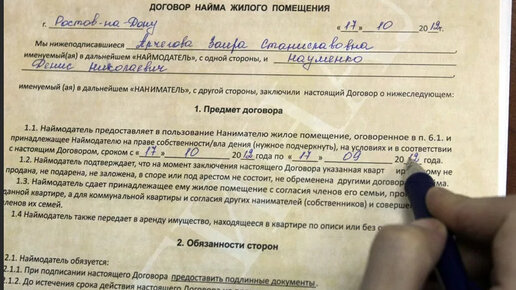 ДОГОВОР НАЙМА ЖИЛОГО ПОМЕЩЕНИЯ
г. Ростов-на-Дону « 17 » 10 2012г.
Мы нижеподписавшиеся Арчегова Заира Станиславовна
именуемый(ая) в дальнейшем «НАЙМОДАТЕЛЬ», с одной стороны, и Науменко
Денис Николаевич
именуемый(ая) в дальнейшем «НАНИМАТЕЛЬ», с другой стороны, заключили настоящий Договор о нижеследующем:
1. Предмет договора
1.1. Наймодатель предоставляет в пользование Нанимателю жилое помещение, оговоренное в п. 6.1. и
принадлежащее Наймодателю на праве собственности/вла дения (нужное подчеркнуть), на условиях и в соответствии
с настоящим Договором, сроком с « 17 » 10 2012 года по « 17 » 09 20 года.
1.2. Наймодатель подтверждает, что на момент заключения настоящего Договора указанная кварт не
продана, не подарена, не заложена, в споре или под арестом не состоит, не обременена другими договора
1.3. Наймодатель сдает принадлежащее ему жилое помещение с согласия членов его семьи,
данной квартире, а для коммунальной квартиры и согласия других нанимателей (собственников) и
членов их семей.
1.4 Наймодатель также передает в аренду имущество, находящееся в квартире по описи или без
2. Обязанности сторон
2.1. Наймодатель обязуется:
2.1.1. При подписании настоящего Договора предоставить подлинные документы.
2.1.2. До истечения срока действия настоящего Договора